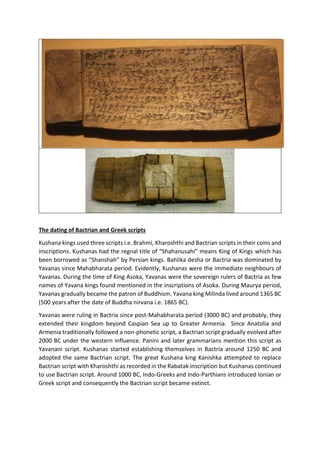 The dating of Bactrian and Greek scripts
Kushana kings used three scripts i.e. Brahmi, Kharoshthi and Bactrian scripts in their coins and
inscriptions. Kushanas had the regnal title of "Shahanusahi" means King of Kings which has
been borrowed as "Shanshah" by Persian kings. Bahlika desha or Bactria was dominated by
Yavanas since Mahabharata period. Evidently, Kushanas were the immediate neighbours of
Yavanas. During the time of King Asoka, Yavanas were the sovereign rulers of Bactria as few
names of Yavana kings found mentioned in the inscriptions of Asoka. During Maurya period,
Yavanas gradually became the patron of Buddhism. Yavana king Milinda lived around 1365 BC
(500 years after the date of Buddha nirvana i.e. 1865 BC).
Yavanas were ruling in Bactria since post-Mahabharata period (3000 BC) and probably, they
extended their kingdom beyond Caspian Sea up to Greater Armenia. Since Anatolia and
Armenia traditionally followed a non-phonetic script, a Bactrian script gradually evolved after
2000 BC under the western influence. Panini and later grammarians mention this script as
Yavanani script. Kushanas started establishing themselves in Bactria around 1250 BC and
adopted the same Bactrian script. The great Kushana king Kanishka attempted to replace
Bactrian script with Kharoshthi as recorded in the Rabatak inscription but Kushanas continued
to use Bactrian script. Around 1000 BC, Indo-Greeks and Indo-Parthians introduced Ionian or
Greek script and consequently the Bactrian script became extinct.